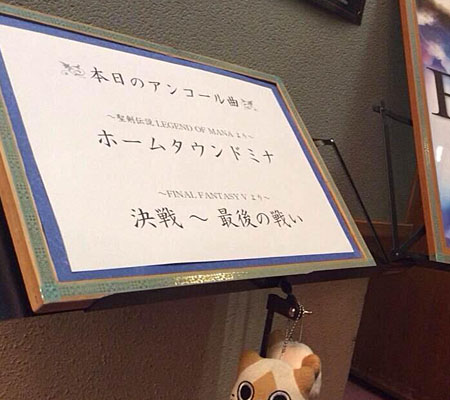 本日のアンコール曲
～聖剣伝説 LEGEND OF MANA より～
ホームタウンドミナ
～FINAL FANTASY V より～
決戦 ～ 最後の戦い